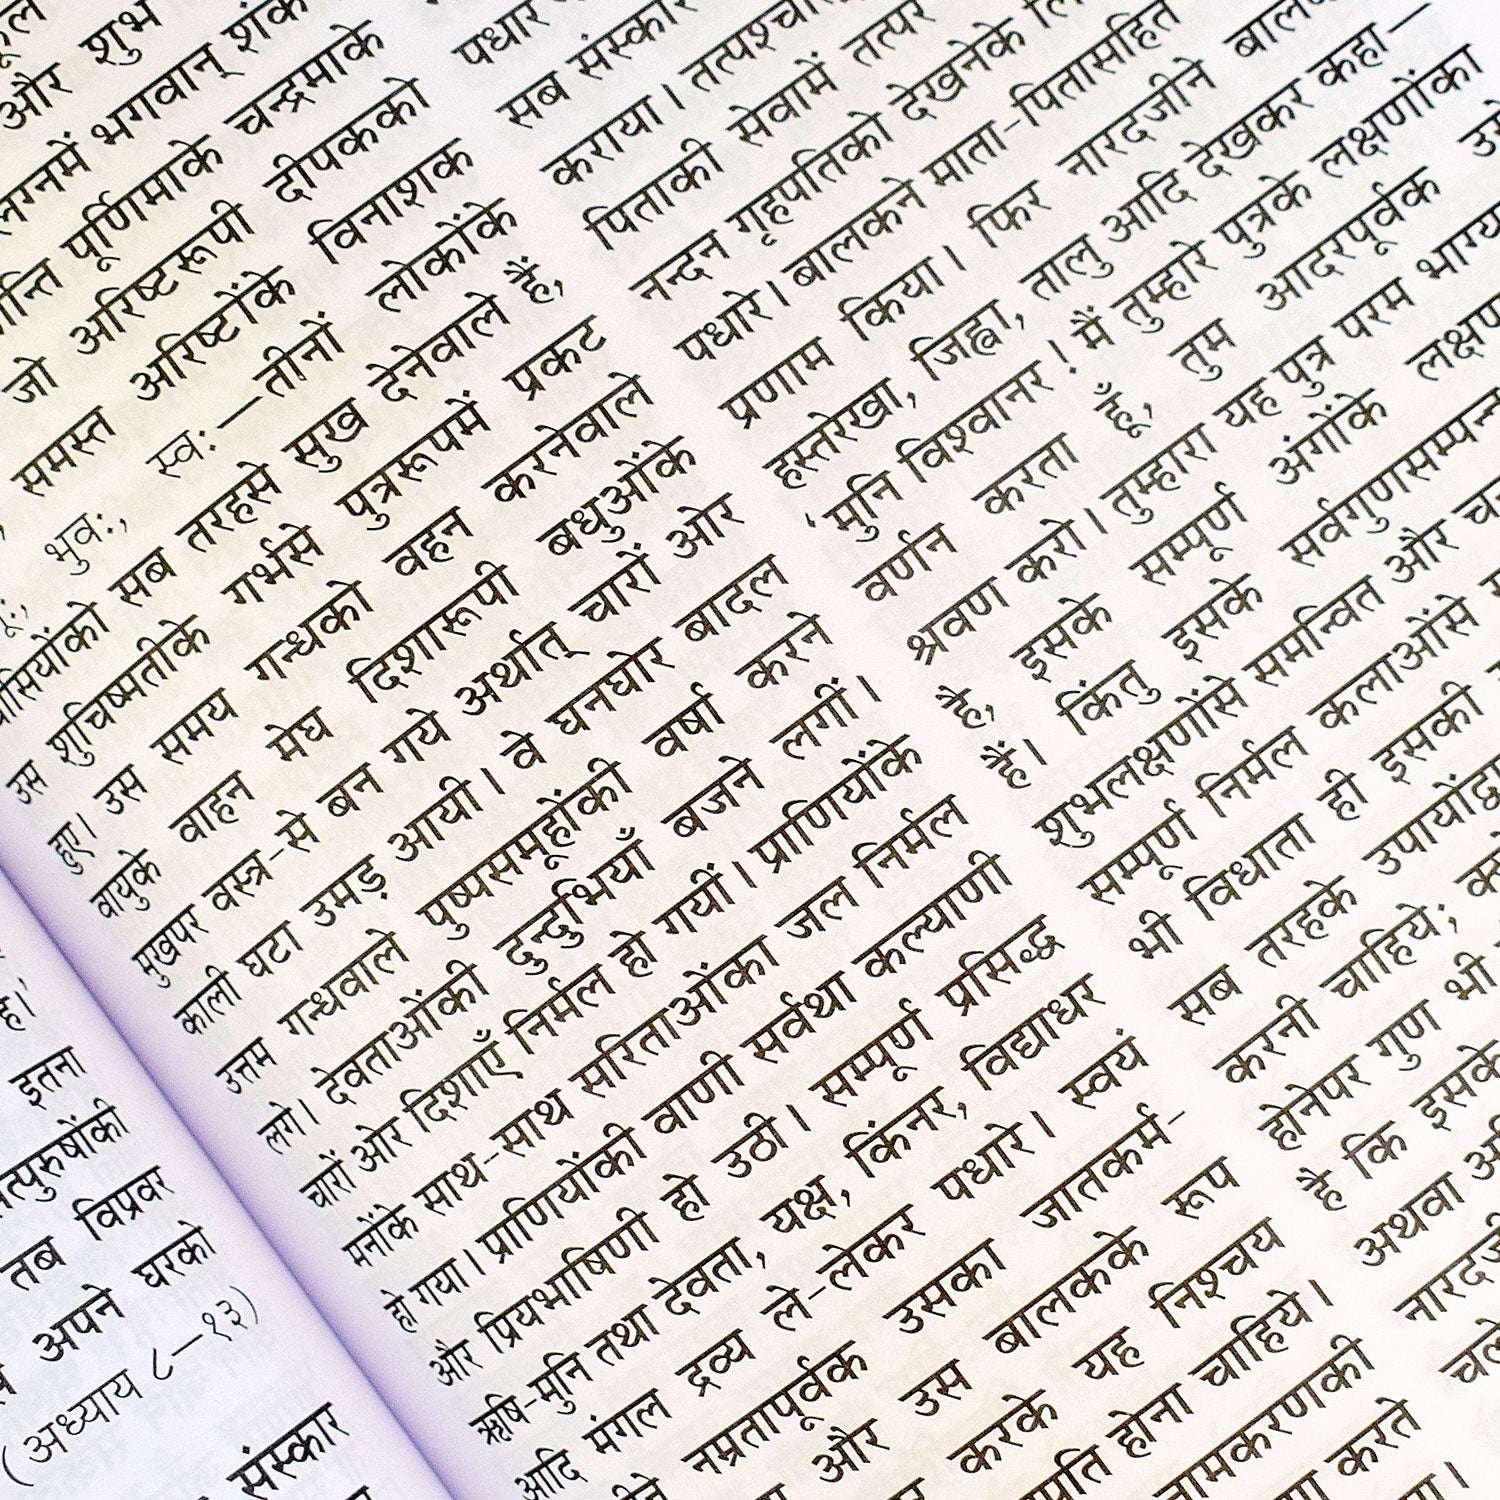 है।'
इतना
तब विप्रवर
अपने घरको
(अध्याय ८—१३)
संस्कार
और शुभ
लग्नमें भगवान् शंक
पूर्णिमाके चन्द्रमाके
जो अरिष्टरूपी दीपकको
समस्त अरिष्टोंके विनाशक
भुवः, स्वः—तीनों लोकोंके
सब तरहसे सुख देनेवाले हैं,
उस शुचिष्मतीके गर्भसे पुत्ररूपमें प्रकट
हुए। उस समय गन्धको वहन करनेवाले
वायुके वाहन मेघ दिशारूपी बधुओंके
मुखपर वस्त्र-से बन गये अर्थात् चारों ओर
काली घटा उमड़ आयी। वे घनघोर बादल
उत्तम गन्धवाले पुष्पसमूहोंकी वर्षा करने
लगे। देवताओंकी दुन्दुभियाँ बजने लगीं।
चारों ओर दिशाएँ निर्मल हो गयीं। प्राणियोंके
मनोंके साथ-साथ सरिताओंका जल निर्मल
हो गया। प्राणियोंकी वाणी सर्वथा कल्याणी
और प्रियभाषिणी हो उठी। सम्पूर्ण प्रसिद्ध
ऋषि-मुनि तथा देवता, यक्ष, किंनर, विद्याधर
आदि मंगल द्रव्य ले-लेकर पधारे। स्वयं
नम्रतापूर्वक उसका जातकर्म-
और उस बालकके रूप
करके यह निश्चय
होना चाहिये।
नामकरणकी
करते
पधार
सब संस्कार
कराया। तत्पश्चात्
पिताकी सेवामें तत्पर
नन्दन गृहपतिको देखनेके
पधारे। बालकने माता-पितासहित
प्रणाम किया। फिर नारदजीने
हस्तरेखा, जिह्वा, तालु आदि देखकर कहा—
'मुनि विश्वानर! मैं तुम्हारे पुत्रके लक्षणोंका
वर्णन करता हूँ, तुम आदरपूर्वक
श्रवण करो। तुम्हारा यह पुत्र परम
है, इसके सम्पूर्ण अंगोंके
हैं। किंतु इसके सर्वगुणसम्पन्न
शुभलक्षणोंसे समन्वित और
सम्पूर्ण निर्मल कलाओंसे
भी विधाता ही इसकी
सब तरहके
करनी चाहिये;
होनेपर गुण भी
है कि इसके
अथवा